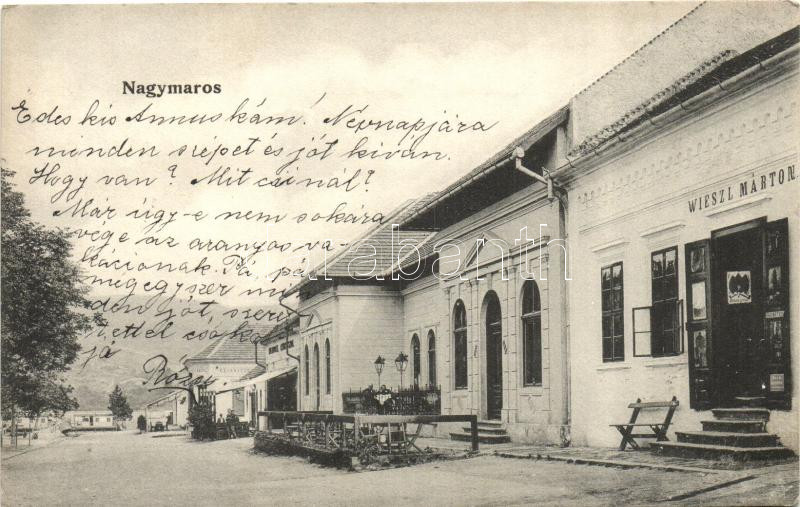 Nagymaros
Édes kis Annuskám! Névnapjára
minden szépet és jót kiván.
Hogy van? Mit csinál?
Már úgy-e nem sokára
vége az aranyos va-
kációnak. Pá, pá
mégegyszer min
den jót, szere
tettel csókol
ja
Rózsi
WIESZL MÁRTON
arabanth